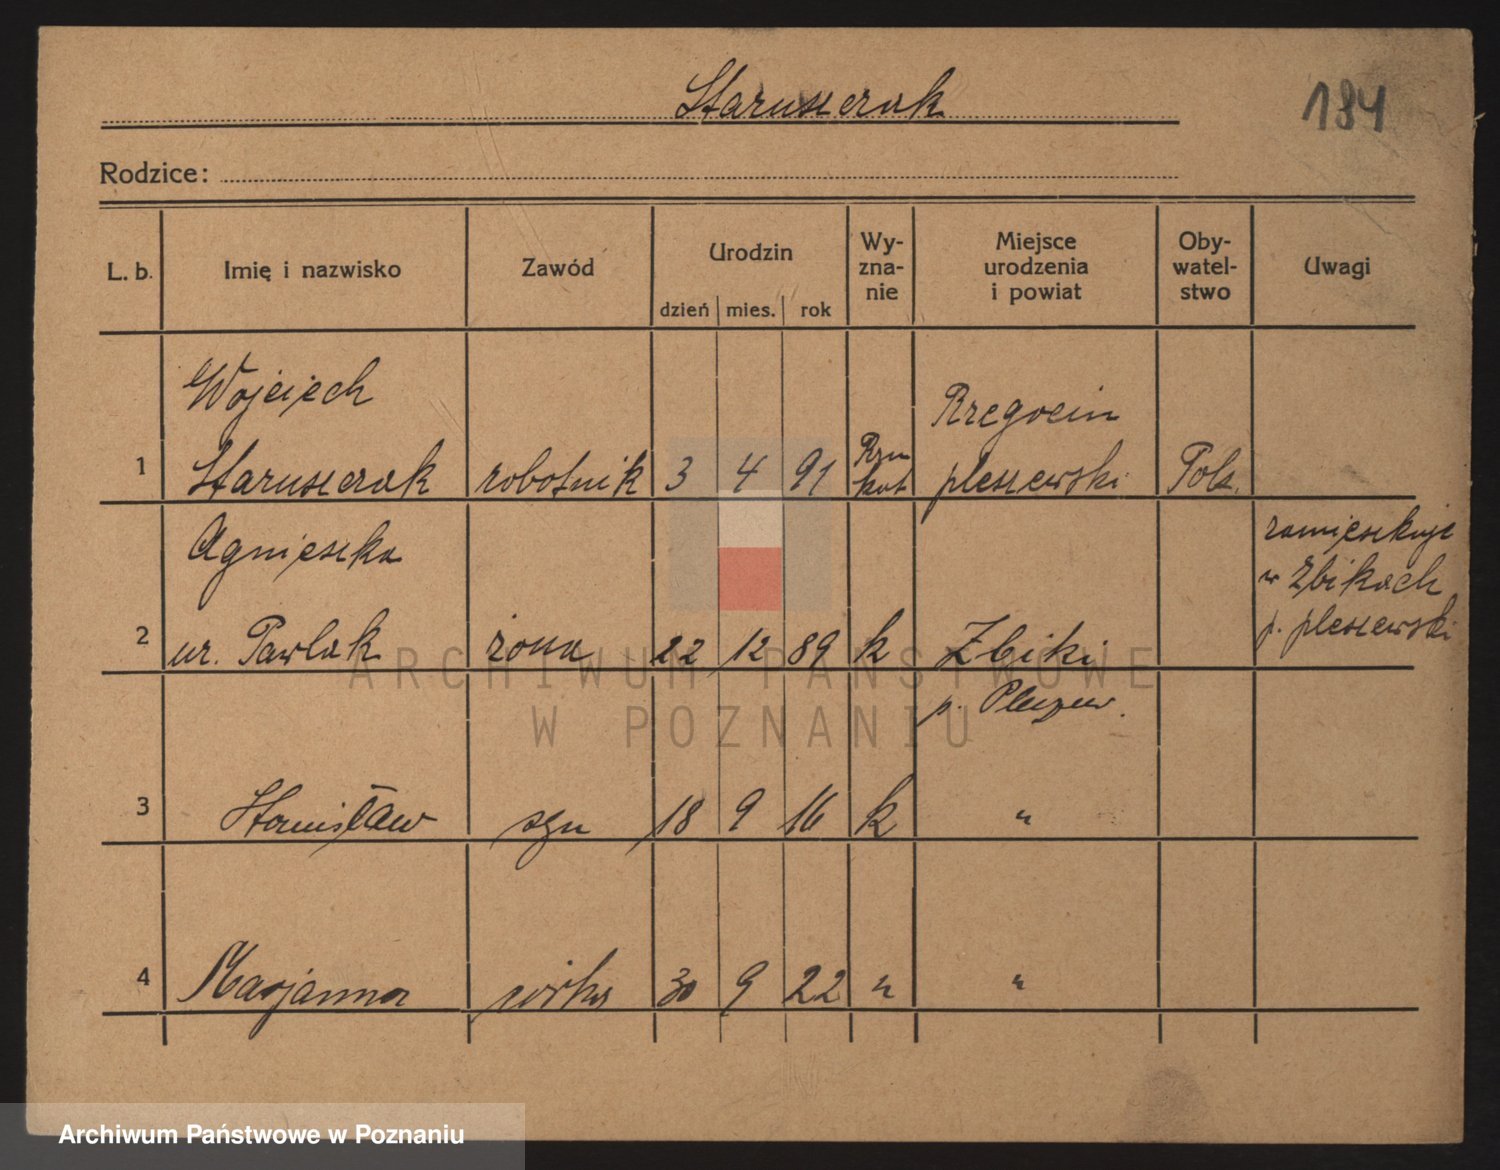 Staruszczak
184
Rodzice:
L. b.
Imię i nazwisko
Zawód
Urodzin
dzień mies. rok
Wy-
zna-
nie
Miejsce
urodzenia
i powiat
Oby-
watel-
stwo
Uwagi
Wojciech
1 Staruszczak robotnik 3 4 91 Rzm kat
Rzegocin
pleszewski Pols.
Agnieszka
2 ur. Pawlak żona 22 12 89 k Żbiki
p. Pleszew.
zamieszkuje
w Żbikach
p. pleszewski
3 Stanisław syn 18 9 16 k "
4 Marjanna córka 30 9 22 " "
ARCHIWUM PAŃSTWOWE
W POZNANIU
Archiwum Państwowe w Poznaniu